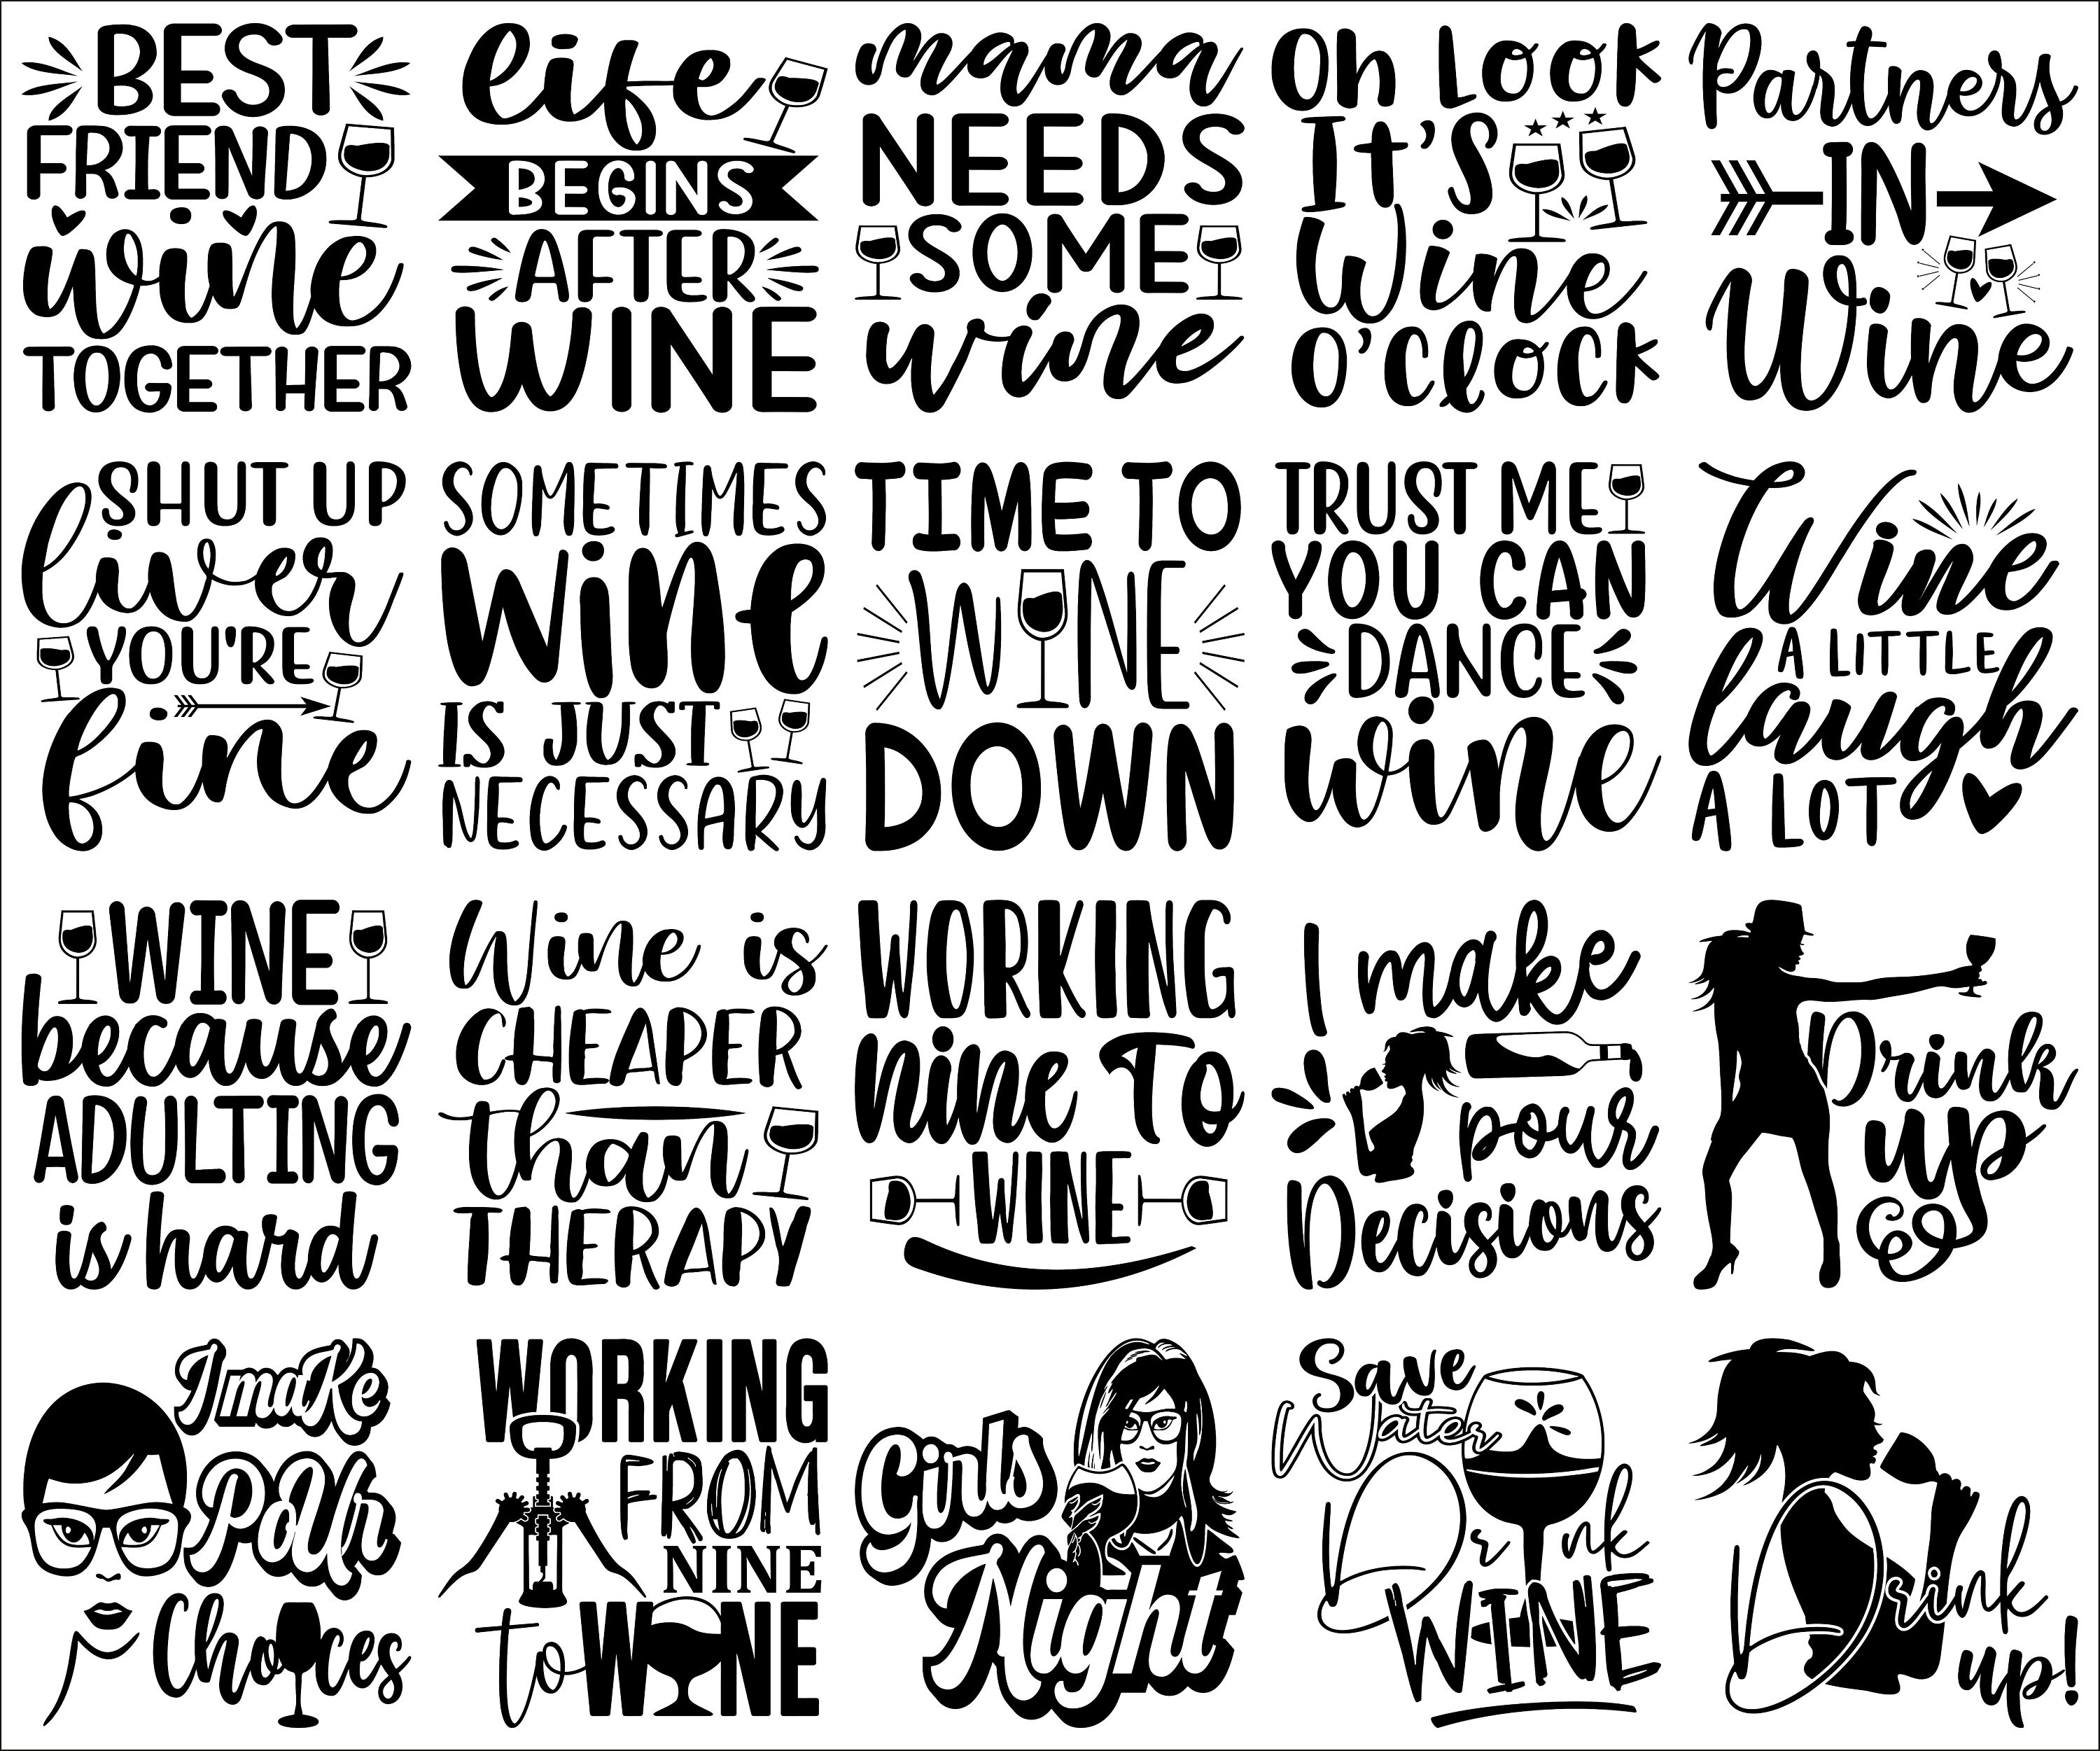 BEST
FRIEND
wine
TOGETHER
life
BEGINS
AFTER
WINE
mama
NEEDS
SOME
wine
Oh Look
It's
Wine
O'Clock
Partners
IN
Wine
SHUT UP
liver
YOU'RE
fine
SOMETIMES
wine
IS JUST
NECESSARY
TIME TO
WINE
DOWN
TRUST ME
YOU CAN
DANCE
wine
Wine
A LITTLE
laugh
A LOT
WINE
because
ADULTING
is hard
Wine is
CHEAPER
than
THERAPY
WORKING
nine To
WINE
I make
pour
Decisions
Drink
up
I make
Choices
WORKING
FROM
NINE
to WINE
Girls
Night
Save
Water
Drink
WINE
Drink
up!